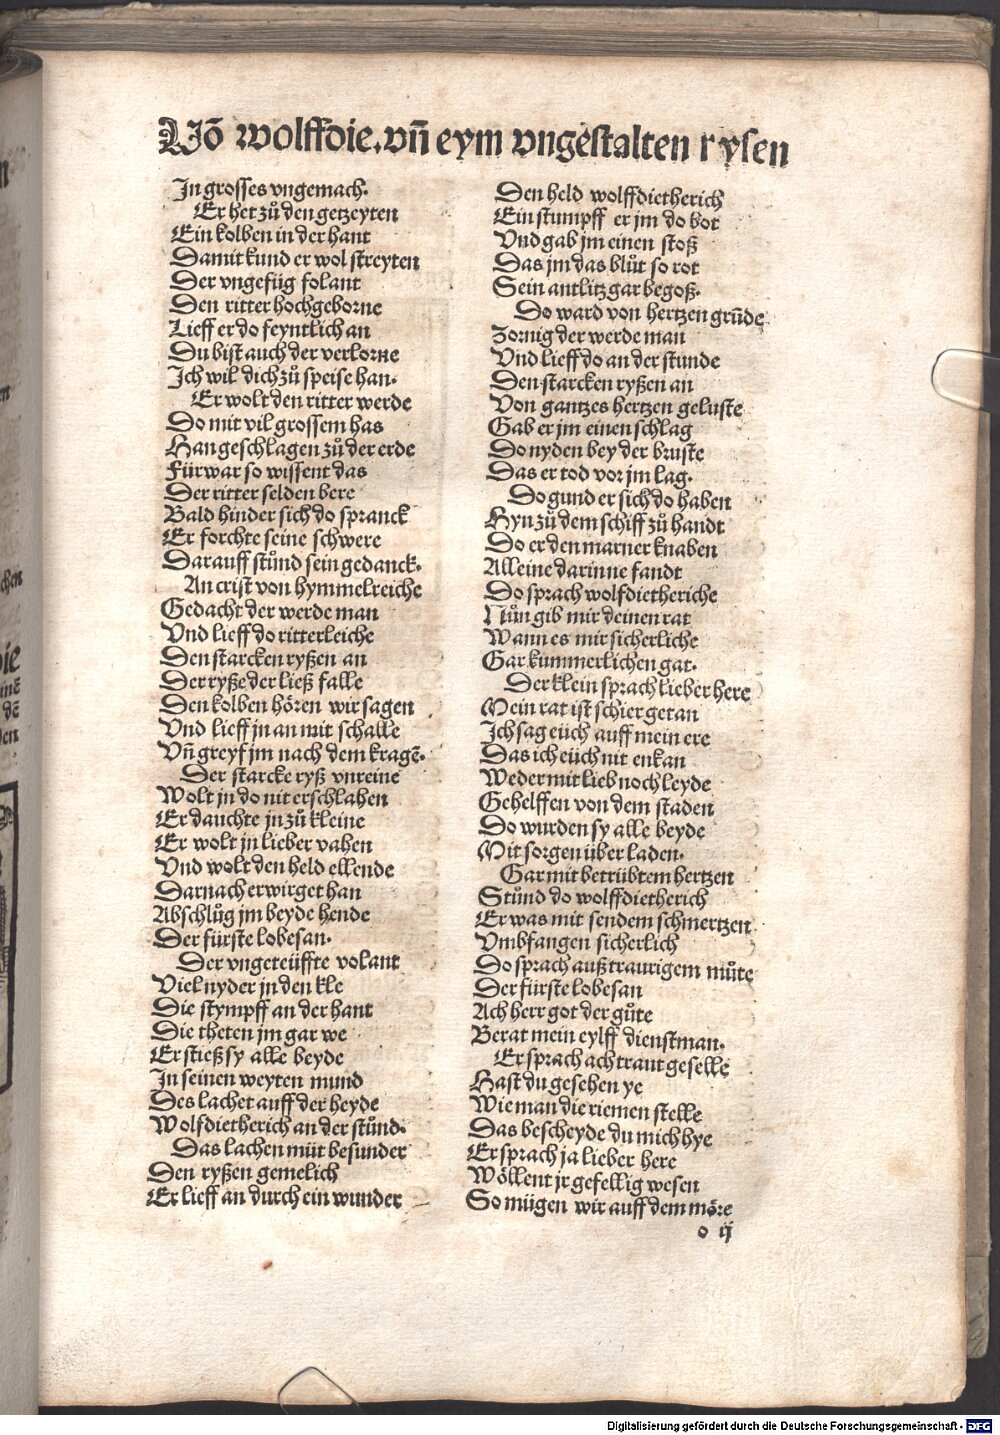 Uõ wolffdie. vñ eym vngestalten rysen
In grosses vngemach.
Er het zů den getzeyten
Ein kolben in der hant
Damit kund er wol streyten
Der vngefüg folant
Den ritter hochgeborne
Lieff er do feyntlich an
Du bist auch der verlorne
Ich wil dich zů speise han.
Er wolt den ritter werde
Do mit vil grossem has
Han geschlagen zů der erde
Fürwar so wissent das
Der ritter selden bere
Bald hinder sich do spranck
Er forchte seine schwere
Darauff stůnd sein gedanck.
An crist von hymmelreiche
Gedacht der werde man
Vnd lieff do ritterleiche
Den starcken ryßen an
Der ryße der ließ falle
Den kolben hören wir sagen
Vnd lieff jn an mit schalle
Vñ greyf jm nach dem kragē.
Der starcke ryß vnreine
Wolt jn do nit erschlahen
Er dauchte jn zů kleine
Er wolt jn lieber vahen
Vnd wolt den held ellende
Darnach erwirget han
Abschlůg jm beyde hende
Der fürste lobesan.
Der vngeteüffte volant
Viel nyder jn den kle
Die stympff an der hant
Die theten jm gar we
Er stieß sy alle beyde
In seinen weyten mund
Des lachet auff der heyde
Wolfdietherich an der stůnd.
Das lachen müt besunder
Den ryßen gemelich
Er lieff an durch ein wunder
Den held wolffdietherich
Ein stumpff er jm do bot
Vnd gab jm einen stoß
Das jm das blůt so rot
Sein antlitz gar begoß.
Do ward von hertzen grūde
Zornig der werde man
Vnd lieff do an der stunde
Den starcken ryßen an
Von gantzes hertzen geluste
Gab er jm einen schlag
Do nyden bey der bruste
Das er tod vor jm lag.
Do gund er sich do haben
Hyn zů dem schiff zů handt
Do er den marner knaben
Alleine darinne fandt
Do sprach wolfdietheriche
Nůn gib mir deinen rat
Wann es mir sicherliche
Gar kummerlichen gat.
Der klein sprach lieber here
Mein rat ist schier getan
Ich sag eüch auff mein ere
Das ich eüch nit enkan
Weder mit lieb noch leyde
Gehelffen von dem staden
Do wurden sy alle beyde
Mit sorgen über laden.
Gar mit betrübtem hertzen
Stůnd do wolffdietherich
Er was mit sendem schmertzen
Vmbfangen sicherlich
Do sprach auß traurigem můte
Der fürste lobesan
Ach herr got der gůte
Berat mein eylff dienstman.
Er sprach ach traut geselle
Hast du gesehen ye
Wie man die riemen stelle
Das bescheyde du mich hye
Er sprach ja lieber here
Wöllent jr gefellig wesen
So mügen wir auff dem möre
o ij
Digitalisierung gefördert durch die Deutsche Forschungsgemeinschaft - DFG